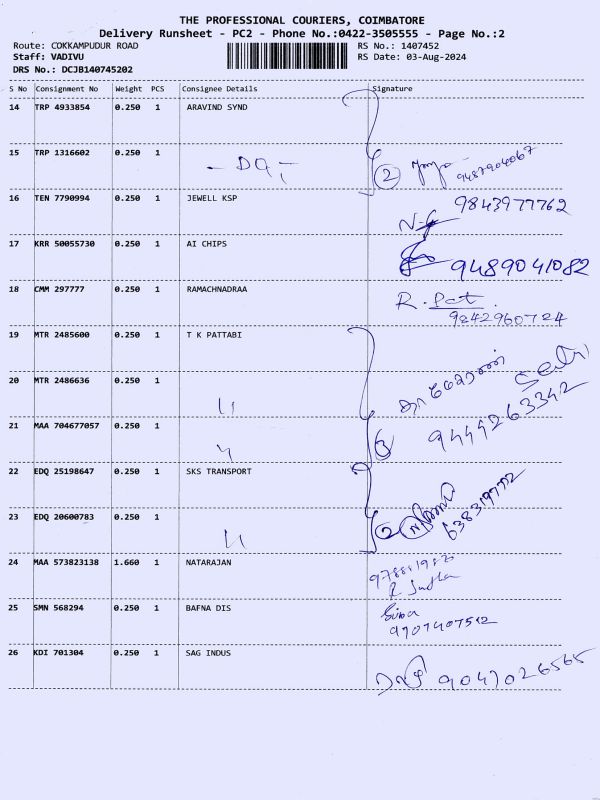 THE PROFESSIONAL COURIERS, COIMBATORE
Delivery Runsheet - PC2 - Phone No.:0422-3505555 - Page No.:2
Route: COKKAMPUDUR ROAD RS No.: 1407452
Staff: VADIVU RS Date: 03-Aug-2024
DRS No.: DCJB140745202
S No Consignment No Weight PCS Consignee Details Signature
14 TRP 4933854 0.250 1 ARAVIND SYND
15 TRP 1316602 0.250 1
2 9487904067
16 TEN 7790994 0.250 1 JEWELL KSP 9843977762
17 KRR 50055730 0.250 1 AI CHIPS
9489041082
18 CMM 297777 0.250 1 RAMACHNADRAA
R. Pat.
9842960724
19 MTR 2485600 0.250 1 T K PATTABI
20 MTR 2486636 0.250 1
21 MAA 704677057 0.250 1
3 9444263342
22 EDQ 25198647 0.250 1 SKS TRANSPORT
23 EDQ 20600783 0.250 1
2
24 MAA 573823138 1.660 1 NATARAJAN
25 SMN 568294 0.250 1 BAFNA DIS
Siva
9707407512
26 KDI 701304 0.250 1 SAG INDUS
9047026565